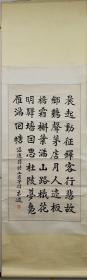 晨起動征鐸客行悲故
鄉鷄聲茅店月人迹板
橋霜槲葉落山路枳花
明驛墻因思杜陵夢鳧
雁滿回塘